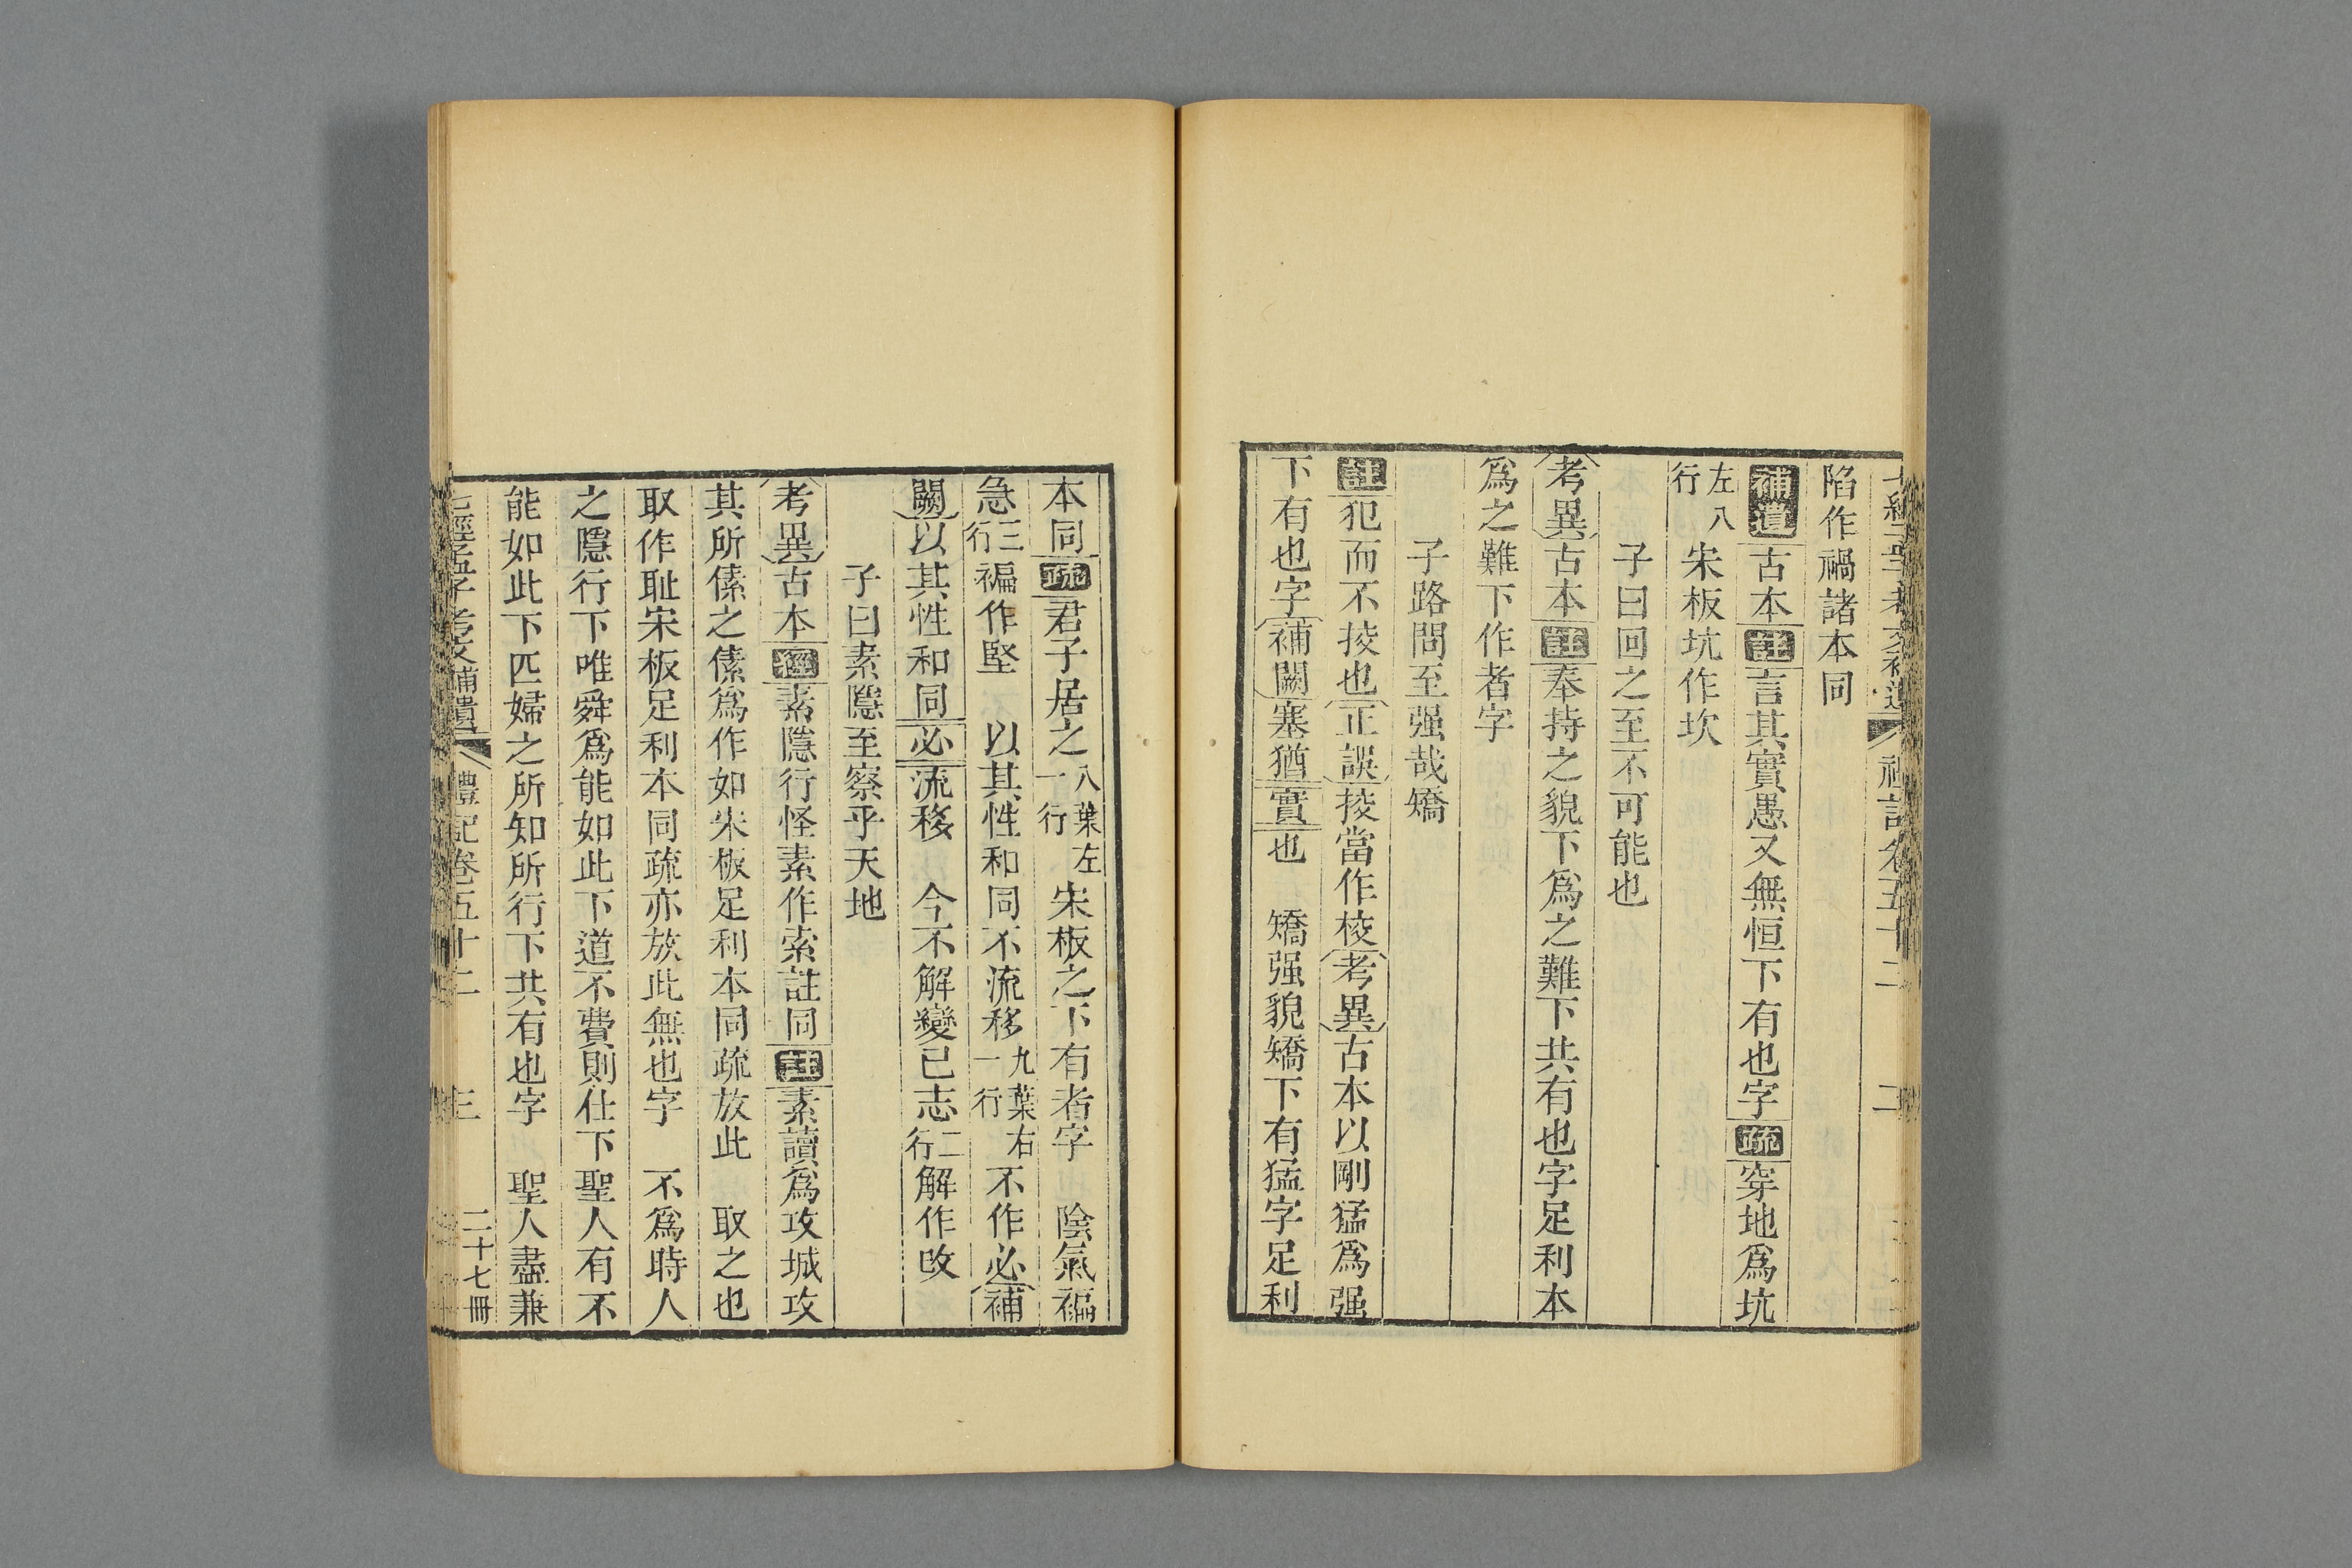 陷作禍諸本同
補遺古本註言其實愚又無恒下有也字疏穿地爲坑
左八行宋板坑作坎
子曰回之至不可能也
考異古本註奉持之貌下爲之難下共有也字足利本
爲之難下作者字
子路問至强哉矯
註犯而不掕也正誤掕當作棱考異古本以剛猛爲强
下有也字補闕塞猶實也 矯强貌矯下有猛字足利
本同疏君子居之八葉左一行宋板之下有者字 陰氣褊
急三行褊作堅 以其性和同不流移九葉右一行不作必補
闕以其性和同必流移 今不解變已志二行解作改
子曰素隱至察乎天地
考異古本經素隱行怪素作索註同註素讀爲攻城攻
其所傃之傃爲作如宋板足利本同疏放此 取之也
取作耻宋板足利本同疏亦放此無也字 不爲時人
之隱行下唯舜爲能如此下道不費則仕下聖人有不
能如此下匹婦之所知所行下共有也字 聖人盡兼
七經孟子考文補遺 禮記卷五十二 三 二十七冊